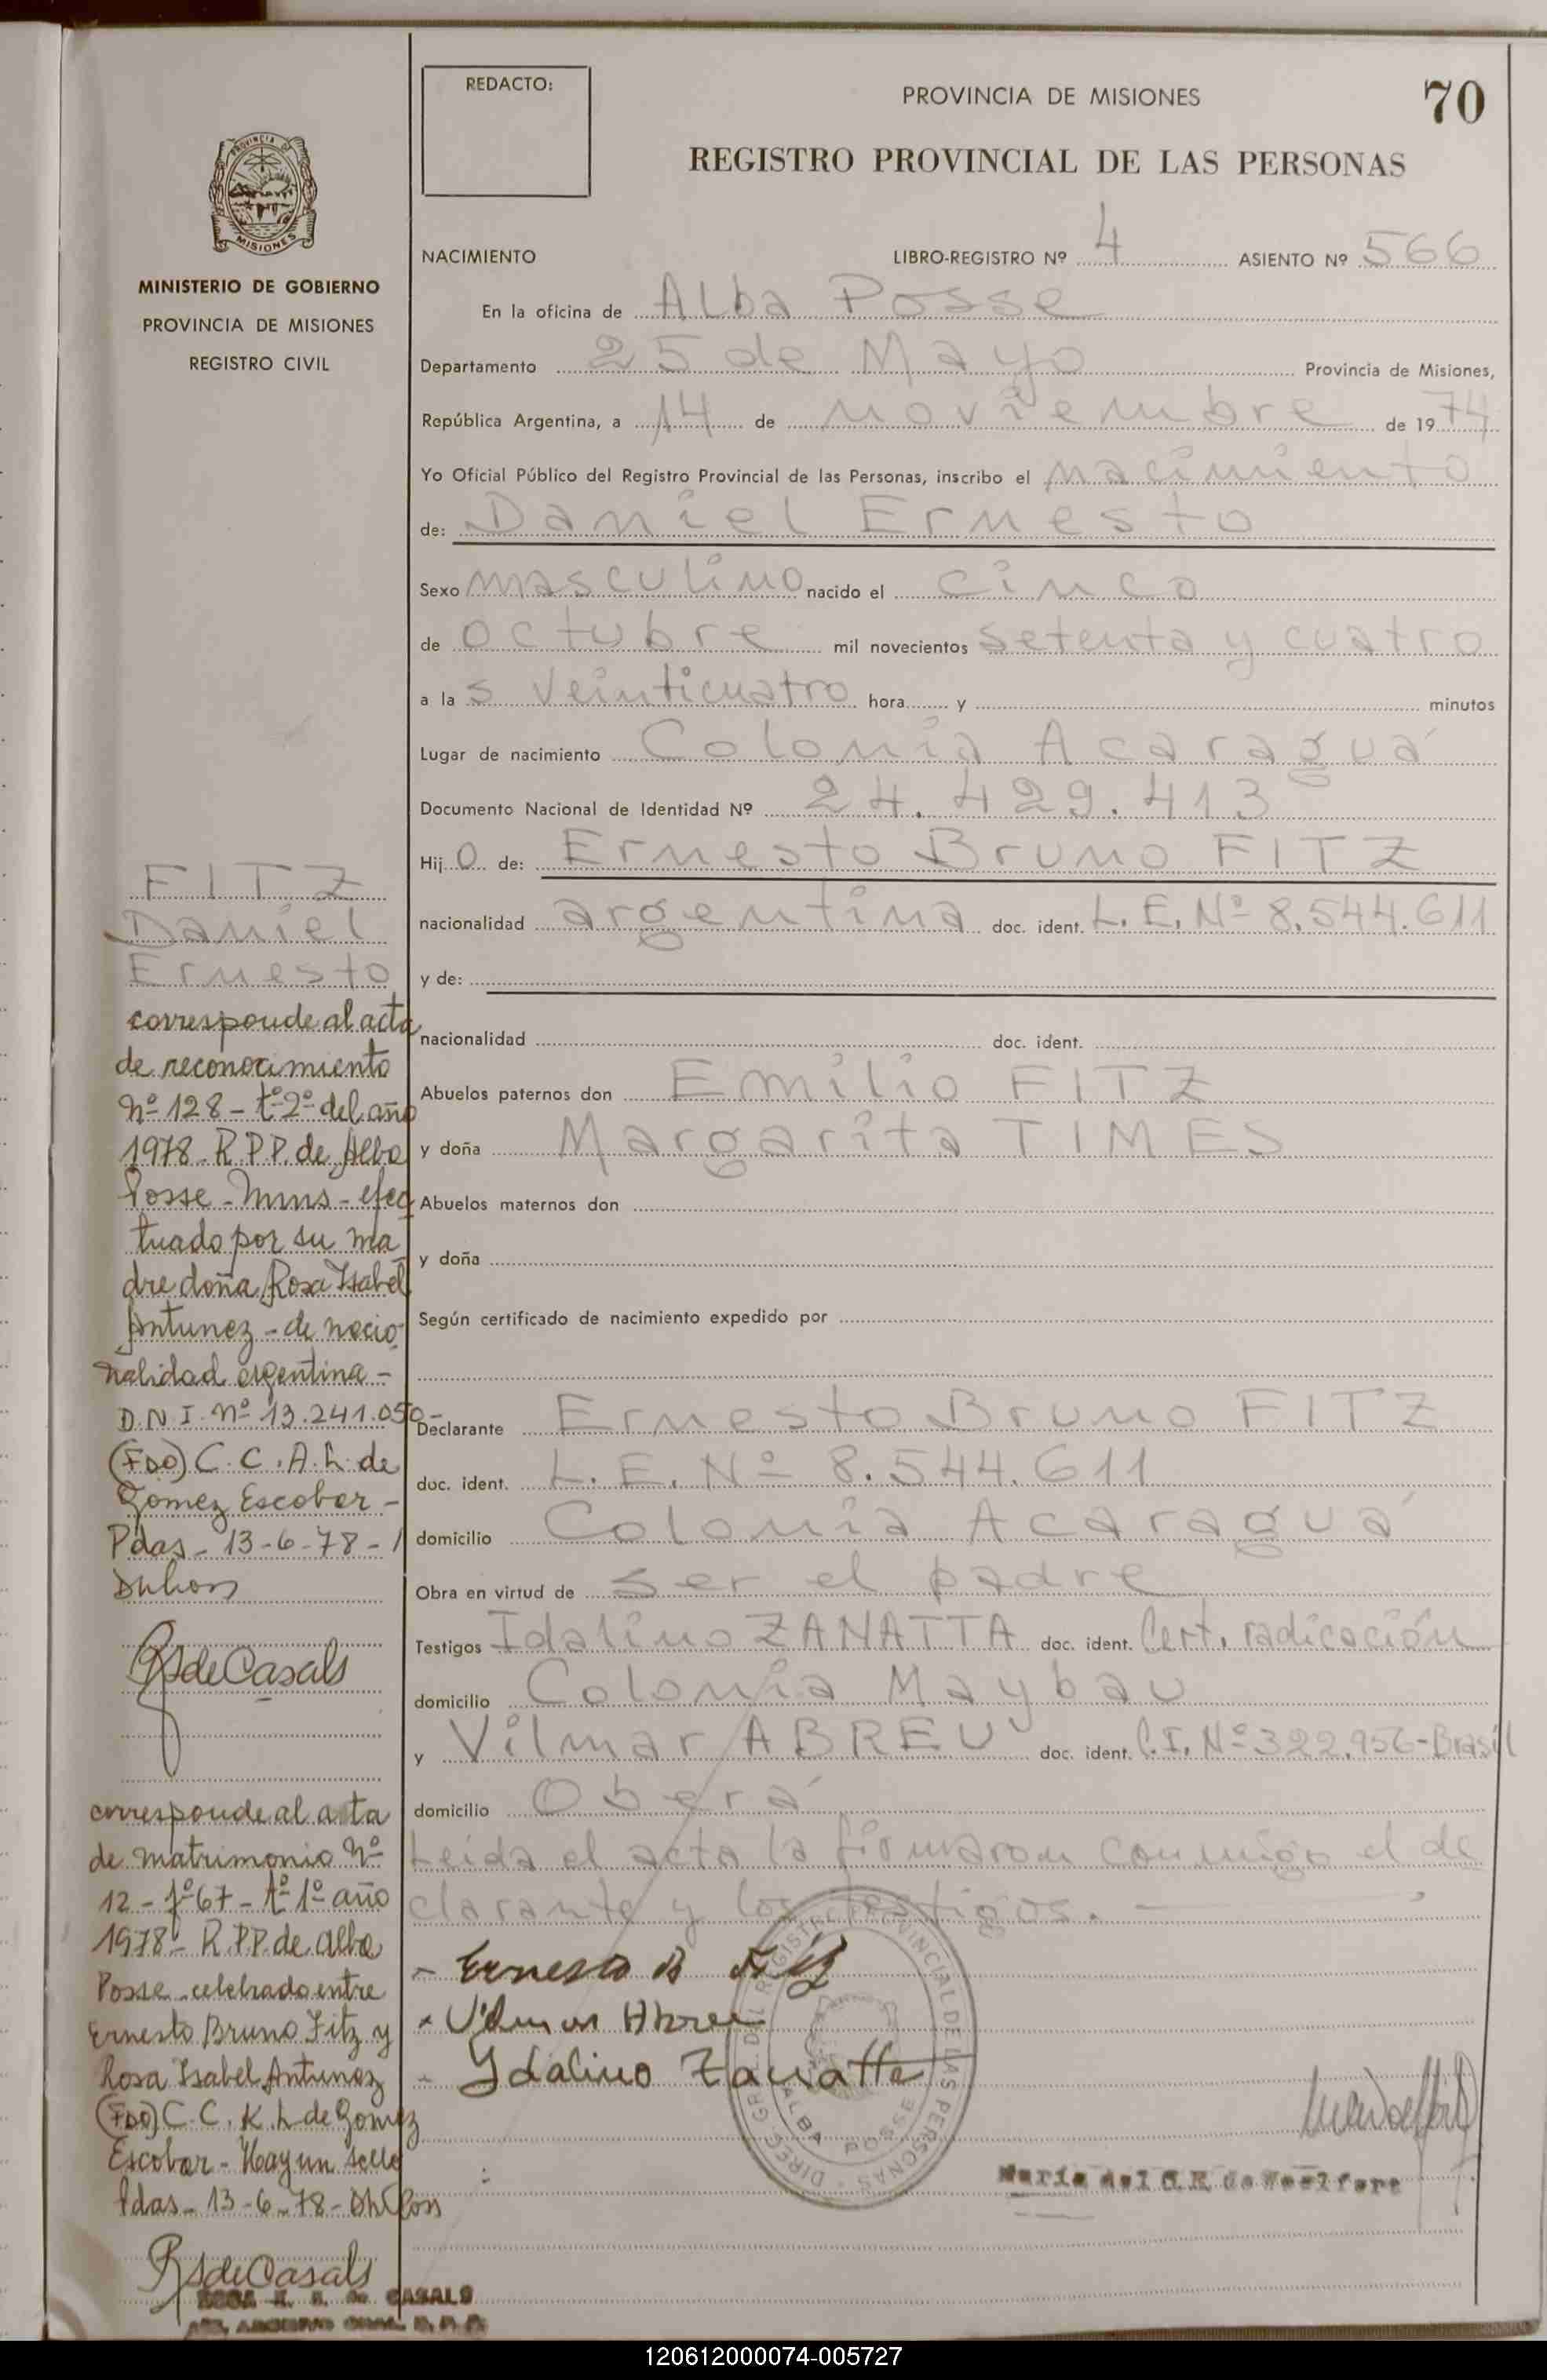 REDACTO:
PROVINCIA DE MISIONES
70
REGISTRO PROVINCIAL DE LAS PERSONAS
PROVINCIA DE
MISIONES
MINISTERIO DE GOBIERNO
PROVINCIA DE MISIONES
REGISTRO CIVIL
NACIMIENTO LIBRO-REGISTRO Nº 4 ASIENTO Nº 566
En la oficina de Alba Posse
Departamento 25 de Mayo Provincia de Misiones,
República Argentina, a 14 de noviembre de 1974
Yo Oficial Público del Registro Provincial de las Personas, inscribo el nacimiento
de: Daniel Ernesto
Sexo masculino nacido el cinco
de octubre mil novecientos setenta y cuatro
a las veinticuatro hora y minutos
Lugar de nacimiento Colonia Acaraguá
Documento Nacional de Identidad Nº 24.429.413
Hijo de: Ernesto Bruno FITZ
nacionalidad argentina doc. ident. L.E. Nº 8.544.611
y de:
nacionalidad doc. ident.
Abuelos paternos don Emilio FITZ
y doña Margarita TIMES
Abuelos maternos don
y doña
Según certificado de nacimiento expedido por
Declarante Ernesto Bruno FITZ
doc. ident. L.E. Nº 8.544.611
domicilio Colonia Acaraguá
Obra en virtud de ser el padre
Testigos Idalino ZANATTA doc. ident. Cert. radicación
domicilio Colonia Maybau
y Vilmar ABREU doc. ident. C.I. Nº 322.956-Brasil
domicilio Oberá
Leida el acta la firmaron conmigo el de
clarante y los testigos.
Ernesto B Fitz
Vilmar Abreu
Idalino Zanatta
DIREC. GRAL. DEL REGISTRO PROVINCIAL DE LAS PERSONAS
ALBA POSSE
Maria del C.R. de
FITZ
Daniel
Ernesto
corresponde al acta
de reconocimiento
Nº 128 - tº 2º del año
1978 - R.P.P. de Alba
Posse - Mnes - efec
tuado por su ma
dre doña Rosa Isabel
Antunez - de nacio
nalidad argentina -
D.N.I. Nº 13.241.050 -
(FDO) C.C.A.L. de
Gomez Escobar -
Pdas - 13-6-78 -
RS de Casals
corresponde al acta
de matrimonio Nº
12 - fº 67 - tº 1º año
1978 - R.P.P. de Alba
Posse - celebrado entre
Ernesto Bruno Fitz y
Rosa Isabel Antunez
(FDO) C.C.K.L de Gomez
Escobar - Hay un sello
Pdas - 13-6-78 -
RS de Casals
ROSA de CASALS
ARCHIVO GRAL. R.P.P.
120612000074-005727